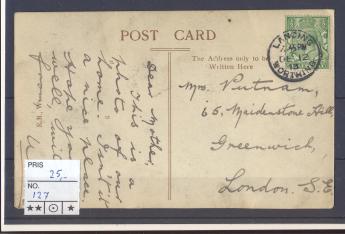 POST CARD
The Address only to be
Written Here
LANCING
DE 12
13
Dear Mother,
This is a
photo of our
home. Isn't it
a nice place.
Hope you
well, will
Mrs. Putnam,
65, Maidenstone Hill,
Greenwich,
London. S.E.
PRIS
25,-
NO.
127
★★ ⊙ ★